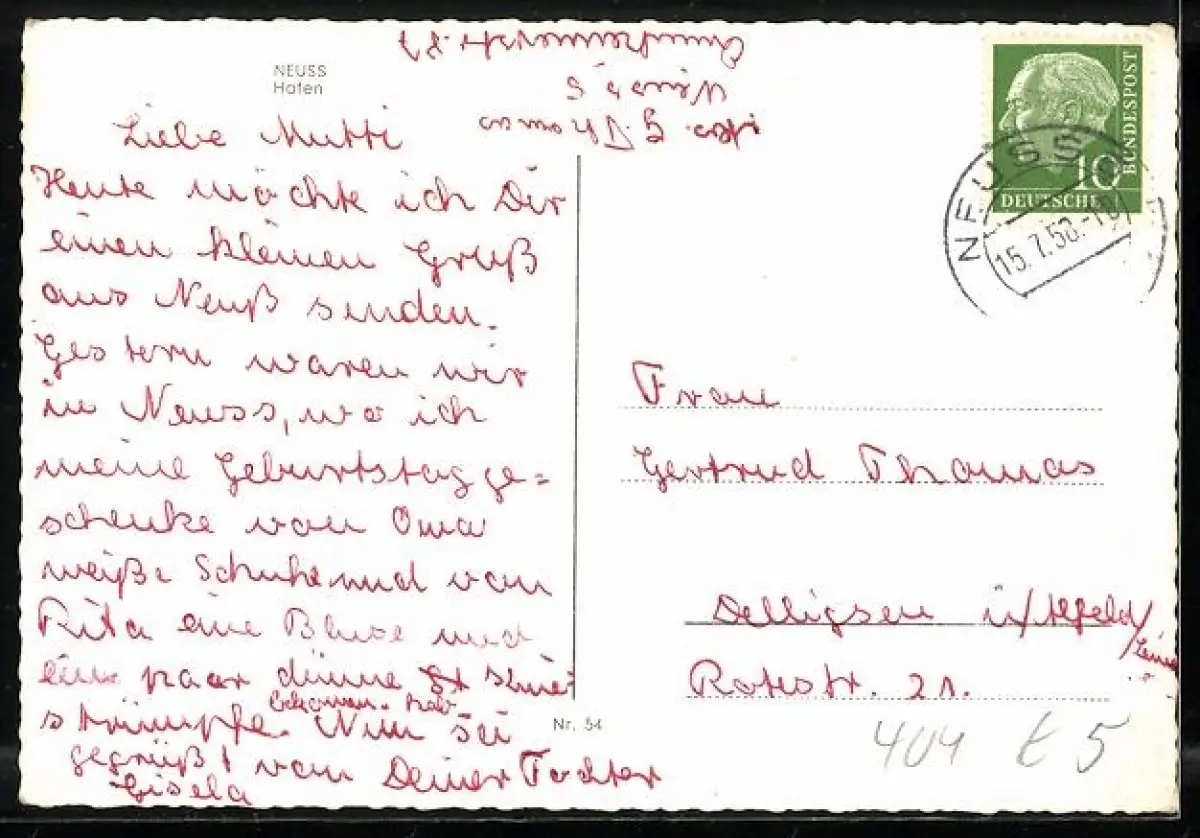 NEUSS
Hafen
Liebe Mutti
Heute möchte ich Dir
einen kleinen Gruß
aus Neuß senden.
Gestern waren wir
in Neuss, wo ich
meine Geburtstagge=
schenke von Oma
weiße Schuhe und von
Rita eine Bluse und
ein paar dünne
strümpfe. Nun sei
gegrüßt von Deiner Tochter
Gisela
Abs. G. Thomas
Neuss
Nr. 54
DEUTSCHE
BUNDESPOST
10
NEUSS
15.7.58.-18
Frau
Gertrud Thomas
Delligsen ü/Alfeld/
Leine
Rotestr. 21.
404 € 5